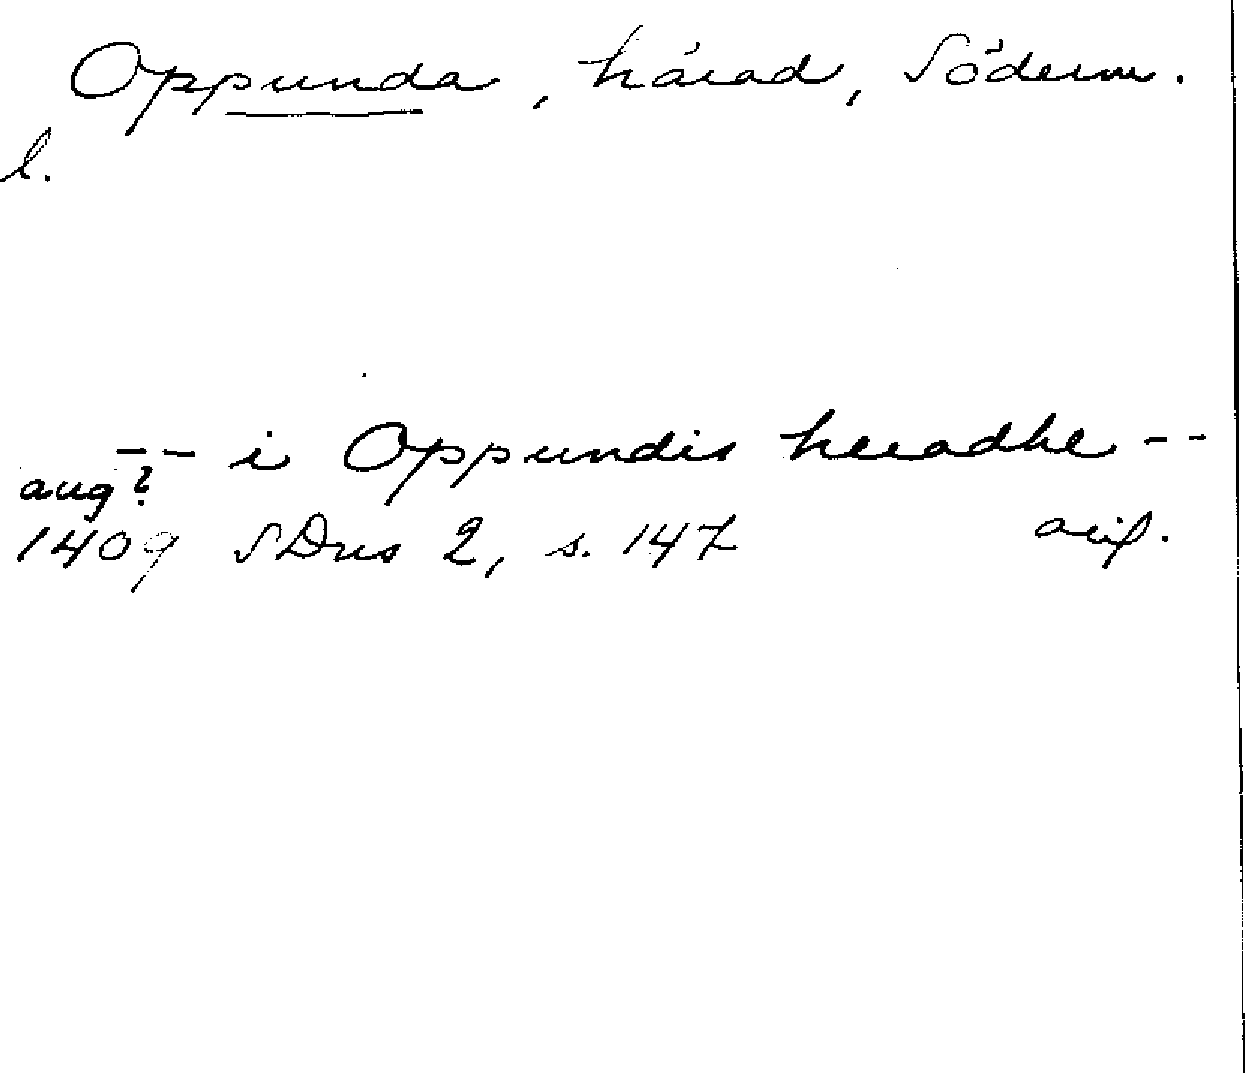 Oppunda, härad, Söderm.
l.
-- i Oppundis heradhe --
aug?
1409 SDns 2, s. 147 orig.